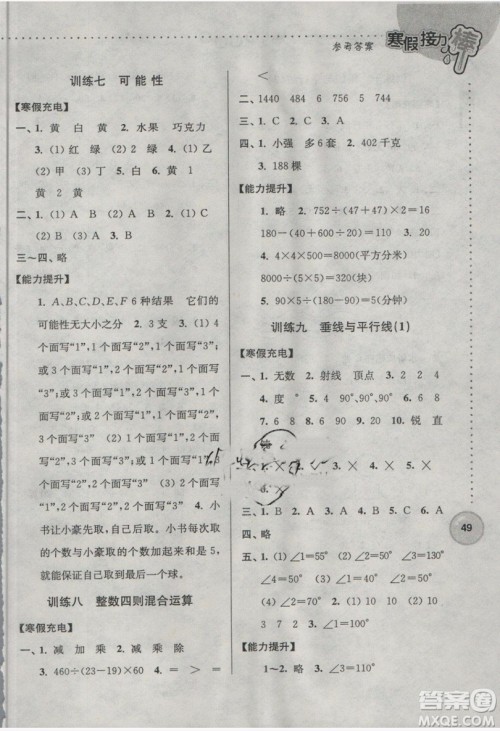 参考答案
寒假接力棒
训练七 可能性
【寒假充电】
一、1. 黄 白 黄 2. 水果 巧克力
3. (1)红 绿 (2)绿 4. (1)乙
(2)甲 (3)丁 5. (1)黄 (2)黄 1
二、1. (1)A (2)B (2)A 2. (1)C
(2)B (3)A
三~四、略
【能力提升】
1. A、B、C、D、E、F 6种结果 它们的
可能性无大小之分 2. 3支 3. (1)
4个面写“1”,1个面写“2”,1个面写
“3”或1个面写“1”,4个面写“2”,1
个面写“3”或1个面写“1”,1个面写
“2”,4个面写“3” (2)3个面写“1”,
3个面写“2” (3)2个面写“1”,2个
面写“2”,2个面写“3” 4. 小
书让小豪先取,自己后取。小书每次取
的个数与小豪取的个数和等于
5,就能保证自己摸到最后一个球。
训练八 整数四则混合运算
【寒假充电】
一、1. 减 加 乘 2. 减 乘 除
3. 460÷(23-19)×60 4. = > =
<
二、1440 484 6 756 275 704
三、1. C 2. C 3. A
四、1. 小强 多6套 2. 402千克
3. 188棵
【能力提升】
1. 略 2. 752÷(47+47)×2=16
180-(40+60)÷5=160
3. 略 4. 40×5×4=8000(平方分米)
8000÷(5×5)=320(块)
5. 90×5÷(90÷5)=5(分钟)
训练九 垂线与平行线(1)
【寒假充电】
一、1. 无数 2. 射线 顶点 3. 2 2 4
4. 度 ° 5. 90°,90°,90° 6. 6
7. 6 8 8. 6 8 9. 60 10. 锐 直
4. × 5. ×
6. ×
三、1. B 2. A 3. C 4. C 5. B 6. A
四、略
五、1. (1)∠1=55° (2)∠1=50°
∠2=130° (3)∠1=60°
∠2=30° (4)∠1=75° ∠2=
105° ∠3=75°
【能力提升】
1~2. 略 3. ∠1=110°
49
答案圈
MXQE.COM